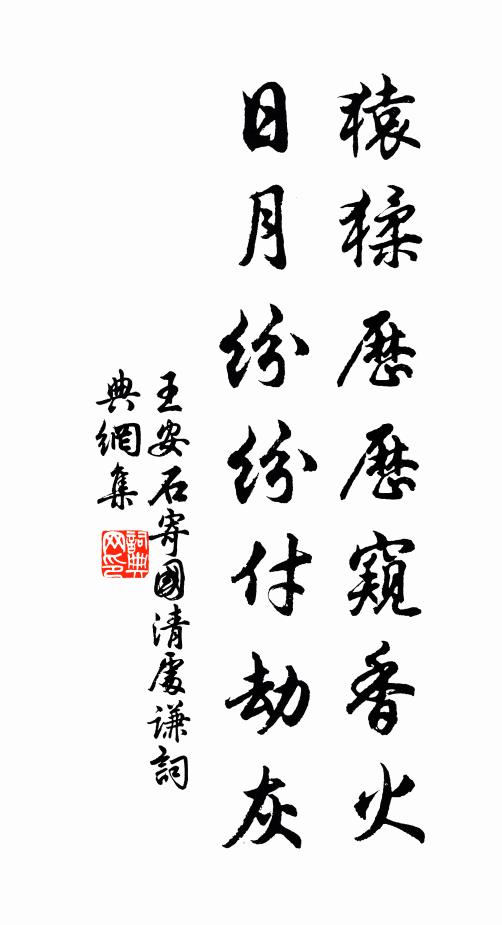 猿猱歷歷窺香火
日月紛紛付劫灰
王安石寄國清處謙詞
典網集
詞典網印